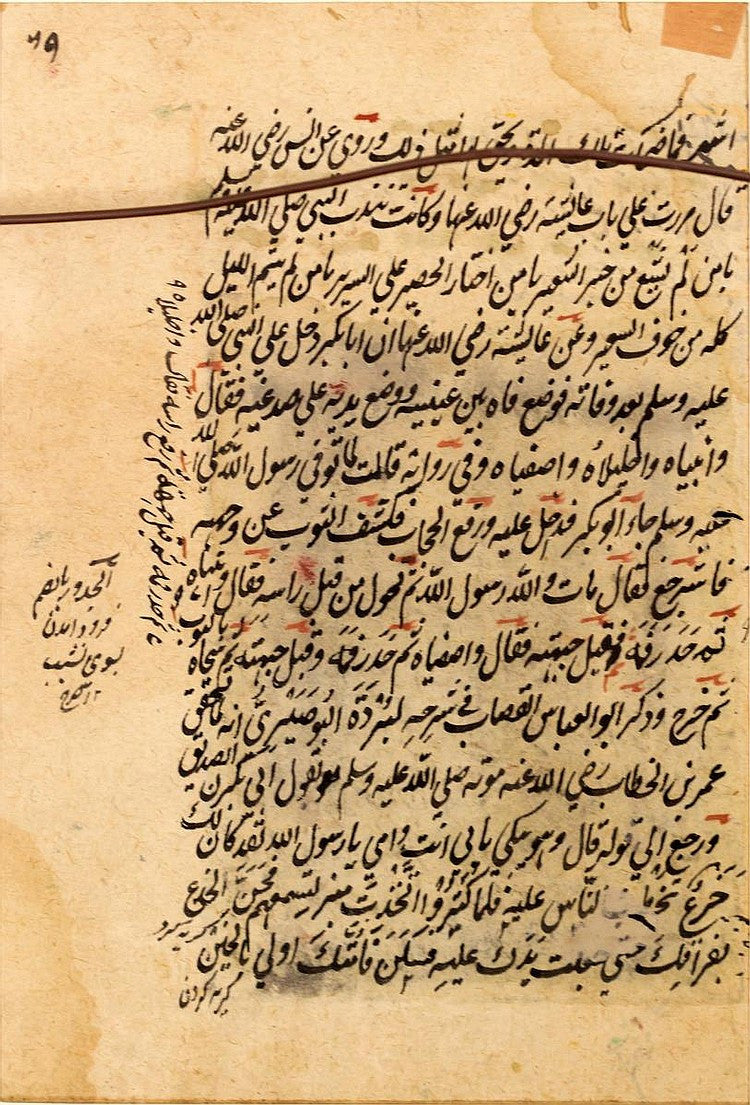 فما ضحكت تلك ذلك وروي عن انس رضي الله عنه
قال مررت علي باب عائشة رضي الله عنها وكانت تندب النبي صلي الله عليه وسلم
يا من لم تشبع من خبز الشعير يا من اختار الحصير علي السرير يا من لم ينم الليل
كله من خوف السعير وعن عائشة رضي الله عنها ان ابا بكر دخل علي النبي صلي الله
عليه وسلم بعد وفاته فوضع فاه بين عينيه ووضع يديه علي صدغيه فقال
وانبياه واخليلاه واصفياه وفي رواية قالت لما توفي رسول الله صلي الله
عليه وسلم جاء ابو بكر فدخل عليه ورفع الحجاب فكشف الثوب عن وجهه
فاسترجع فقال مات والله رسول الله ثم تحول من قبل راسه فقال وانبياه
ثم حدر فمه فقبل جبهته فقال واصفياه ثم حدر فمه وقبل جبهته ثم سجاه بالثوب
ثم خرج وذكر ابو العباس القصاب في شرحه لبردة البوصيري انه لما تحقق
عمر بن الخطاب رضي الله عنه موته صلي الله عليه وسلم بقول ابي بكر الصديق
ورجع الي قوله قال وهو يبكي بابي انت وامي يا رسول الله لقد كان لك
جذع تخطب الناس عليه فلما كثروا اتخذت منبرا لتسمعهم فحن الجذع
بفراقك حتي جعلت يدك عليه فسكن فامتك اولي بالحنين
فرود آمدن
بسوي نشيب
كريه كردن